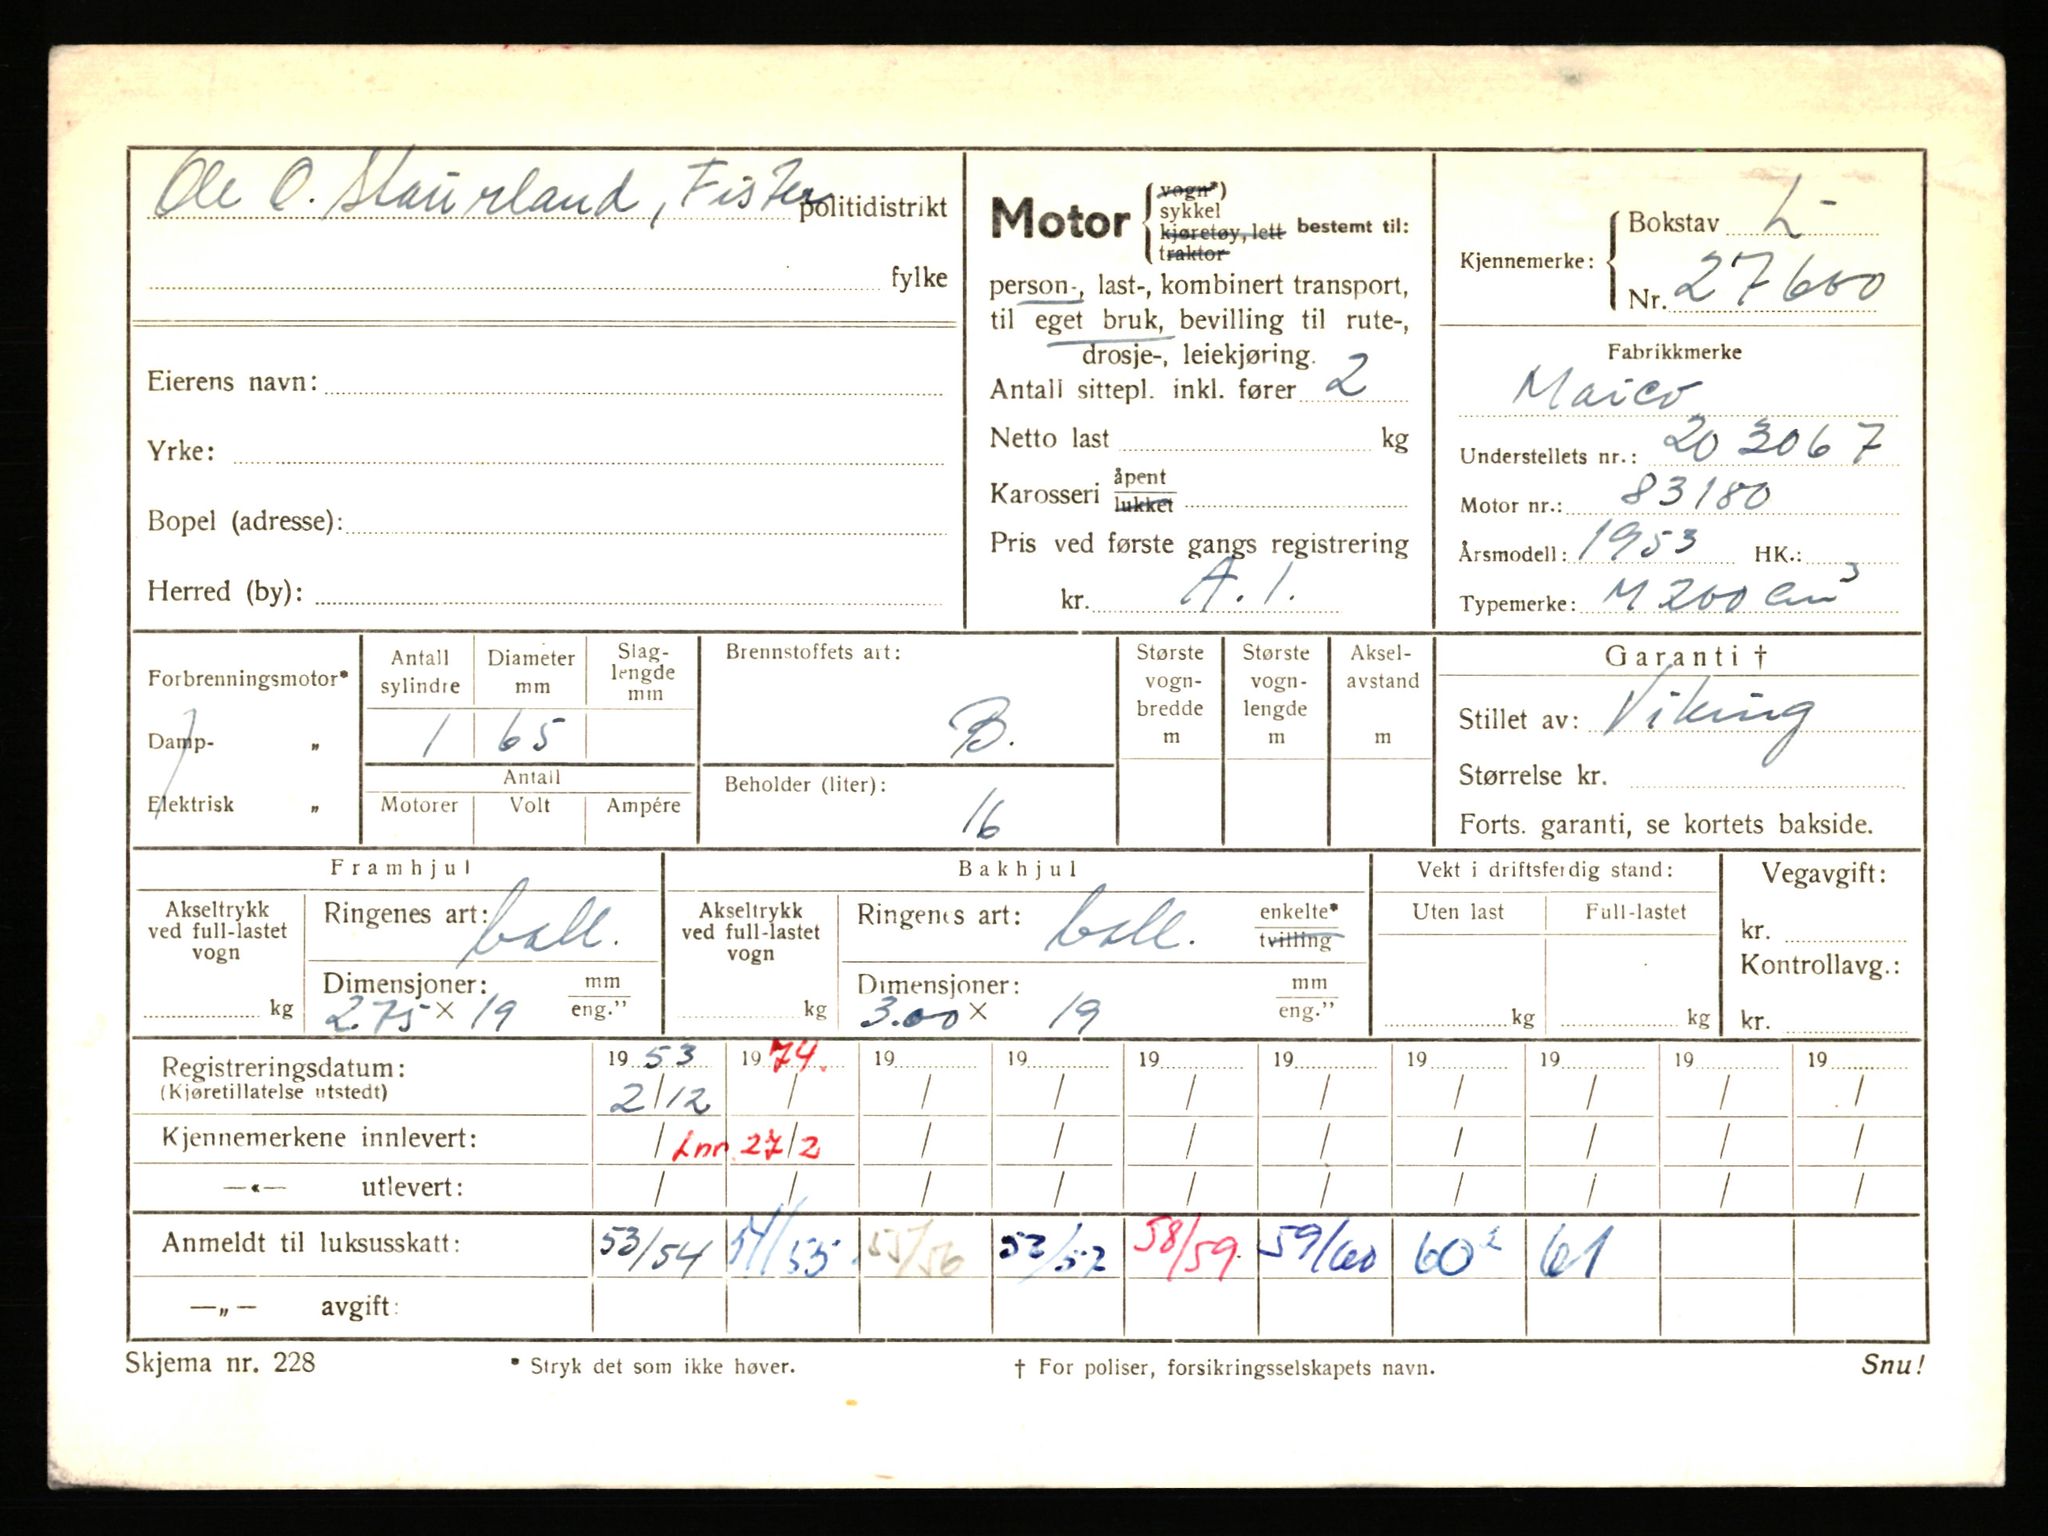 Ole O. Staurland, Fister politidistrikt
fylke
Eierens navn:
Yrke:
Bopel (adresse):
Herred (by):
Motor { vogn*) sykkel kjøretøy, lett traktor bestemt til:
person-, last-, kombinert transport,
til eget bruk, bevilling til rute-,
drosje-, leiekjøring.
Antall sittepl. inkl. fører 2
Netto last kg
Karosseri åpent lukket
Pris ved første gangs registrering
kr. A. 1.
Kjennemerke: { Bokstav L-
Nr. 27600
Fabrikkmerke
Maico
Understellets nr.: 203067
Motor nr.: 83180
Årsmodell: 1953 HK.:
Typemerke: M 200 cm³
Forbrenningsmotor*
Damp- „
Elektrisk „
Antall sylindre 1
Diameter mm 65
Slaglengde mm
Antall
Motorer Volt Ampére
Brennstoffets art: B.
Beholder (liter): 16
Største vogn-bredde m
Største vogn-lengde m
Aksel-avstand m
Garanti †
Stillet av: Viking
Størrelse kr.
Forts. garanti, se kortets bakside.
Framhjul
Akseltrykk ved full-lastet vogn kg
Ringenes art: ball.
Dimensjoner: mm eng."
2.75 × 19
Bakhjul
Akseltrykk ved full-lastet vogn kg
Ringenes art: ball. enkelte* tvilling
Dimensjoner: mm eng."
3.00 × 19
Vekt i driftsferdig stand:
Uten last Full-lastet
kg kg
Vegavgift:
kr.
Kontrollavg.:
kr.
Registreringsdatum: 1953 1974. 19 19 19 19 19 19 19 19
(Kjøretillatelse utstedt) 2/12 / / / / / / / / /
Kjennemerkene innlevert: / Inn. 27/2 / / / / / / / /
—«— utlevert: / / / / / / / / / /
Anmeldt til luksusskatt: 53/54 54/55 55/56 58/59 59/60 60² 61
—„— avgift:
Skjema nr. 228
* Stryk det som ikke høver.
† For poliser, forsikringsselskapets navn.
Snu!